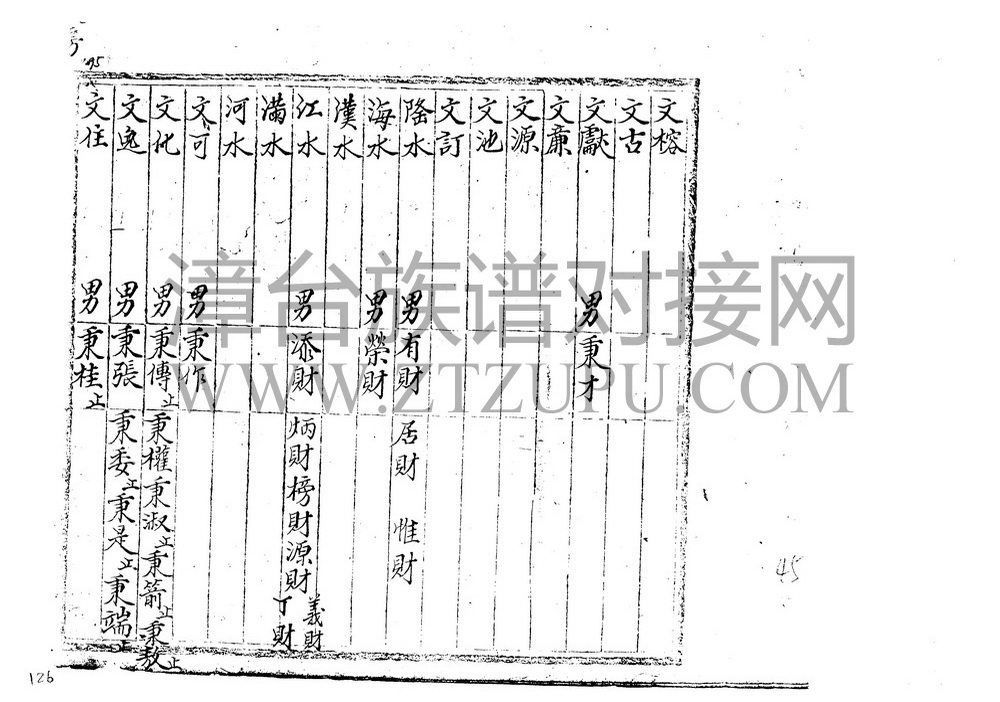 文榕
文古
文獻 男秉才
文蔗
文源
文池
文訂
隆水 男有財 居財 惟財
海水 男榮財
漢水
江水 男添財 炳財 榜財 源財 義財 丁財
滿水
河水
文可 男秉作
文化 男秉傳止 秉權 秉淑止 秉箭止 秉敖止
文逸 男秉張 秉委止 秉是止 秉端止
文住 男秉桂止
45
45
126
漳台族谱对接网
WWW.ZTZUPU.COM